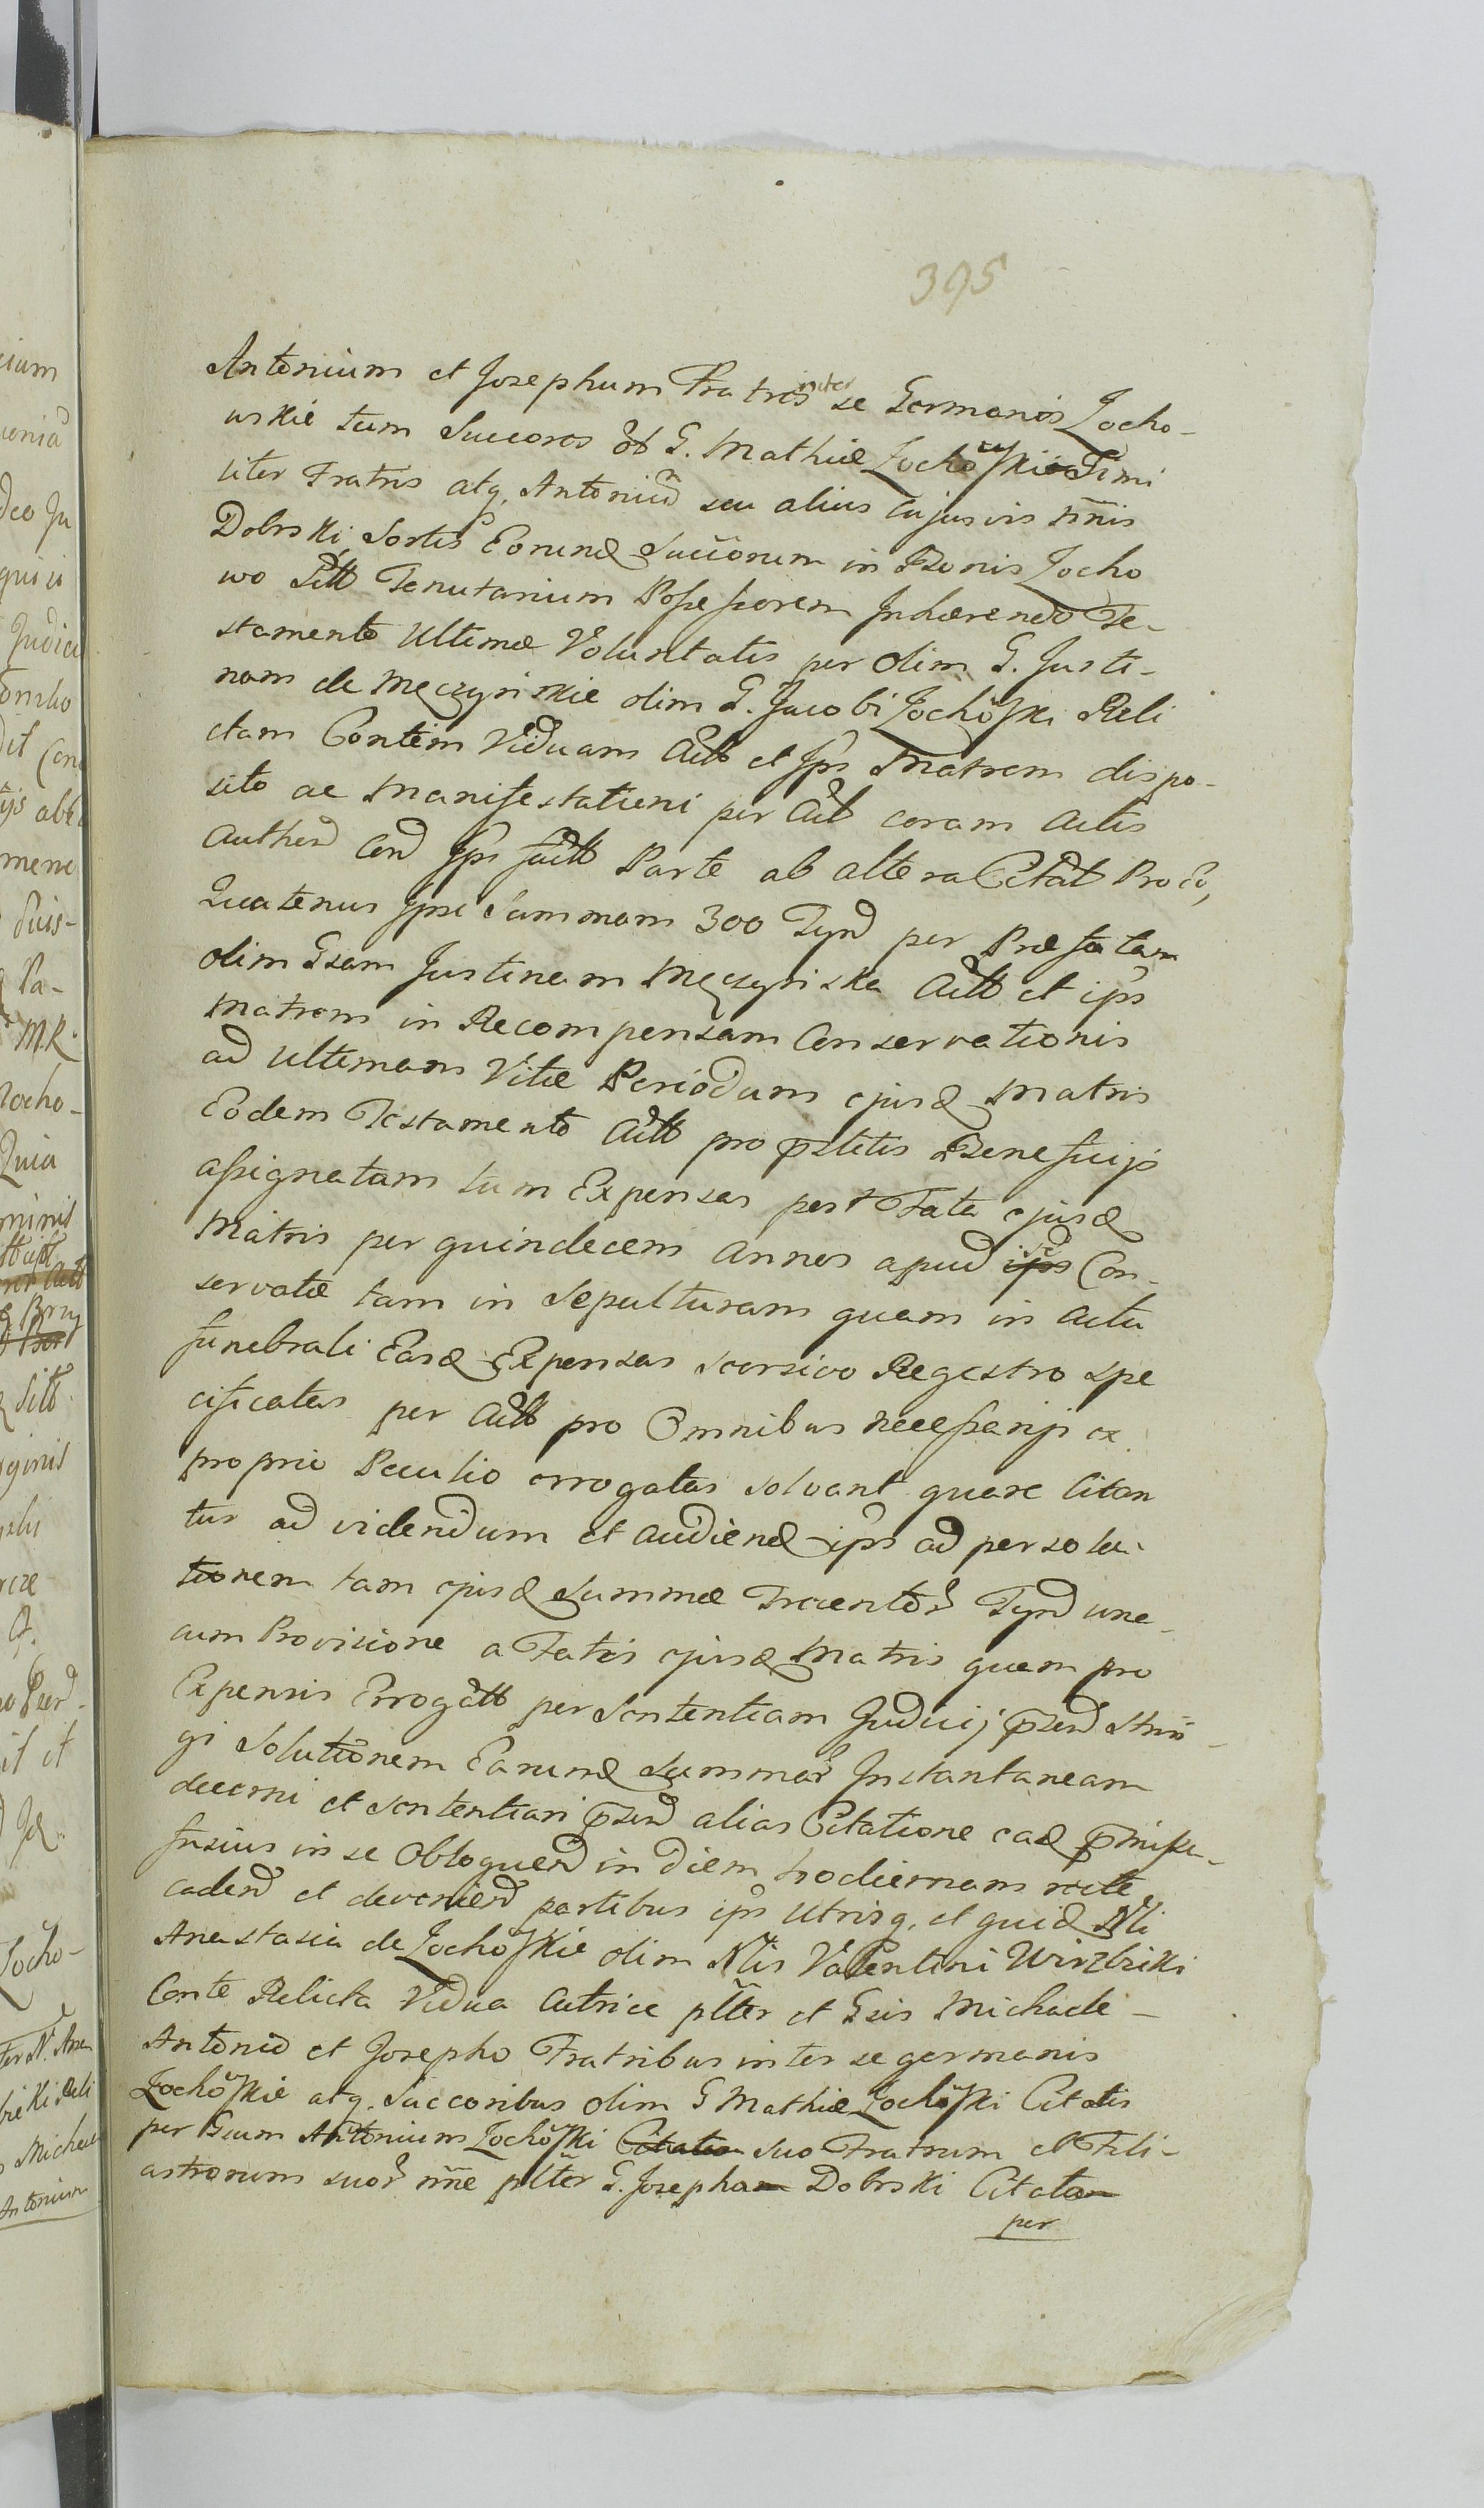 395
Antonium et Josephum Fratres inter se Germanos Zocho-
wskie tum Succores olim G. Mathiæ Zochoskie Simi
liter Fratris atq. Antoniũ seu alius cujusvis nõis
Dobrski Sortis Eorund Succorum in Bonis Zocho
wo Sitt Tenutarium Possessorem Inhærendo Te-
stamento Ultimæ Voluntatis per olim G. Justi-
nam de Męczyńskie olim G. Jacobi Zochoski Reli
ctam Contem Viduam Actt et Ips Matrem dispo-
sito ac Manifestationi per Act coram Actis
Authen Con Ips factt Parte ab altera Citat Pro Eo,
Quatenus Ipsi Summam 300 Tynf per Præfatam
olim Gsam Justinam Męczyńska Actt et ips
Matrem in Recompensam Conservationis
ad Ultimam Vitæ Periodum ejusd Matris
Eodem Testamento Actt pro pstitis Beneficijs
assignatam tum Expensas post Fata ejusd
Matris per quindecem Annos apud se Con-
servatæ tam in Sepulturam quam in Actu
funebrali Easd Expensas seorsivo Regestro spe
cificatas per Actt pro Omnibus necessarijs ex
proprio Peculio errogatas solvant quare Citan
tur ad videndum et audiend ips ad persolu-
tionem tam ejusd Summæ Trecentor Tynf una
cum Provisione a Fatis ejusd Matris quam pro
Expensis Errogatt per Sententiam Judicij psen strin-
gi Solutionem Earund Summar Instantaneam
decerni et sententiari psen alias Citatione ead pmisso-
fusius in se Obloquen in diem hodiernam recte
caden et devenien partibus ips Utrisq. et quid Nli
Anastasia de Zochoskie olim Nlis Valentini Wirzbicki
Conte Relicta Vidua Actrice plter et Gsis Michaele
Antonio et Josepho Fratribus inter se germanis
Zochoskie atq. Succoribus olim G Mathiæ Zochoski Citatis
per Gsum Antonium Zochoski suo Fratrum et Fili-
astrorum suor nõe plter G. Joseph Dobrski Citat
per